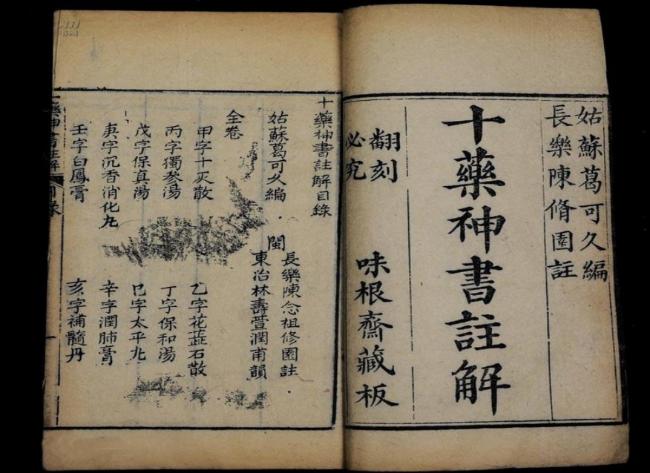 姑蘇葛可久編
長樂陳脩園註
十藥神書註解
翻刻必究
味根齋藏板
十藥神書註解目錄
姑蘇葛可久編
閩
長樂陳念祖修園註
東冶林壽萱潤甫韻
全卷
甲字十灰散
乙字花蕋石散
丙字獨參湯
丁字保和湯
戊字保真湯
巳字太平丸
庚字沉香消化丸
辛字潤肺膏
壬字白鳳膏
亥字補髓丹
十藥神書註解
目錄
一